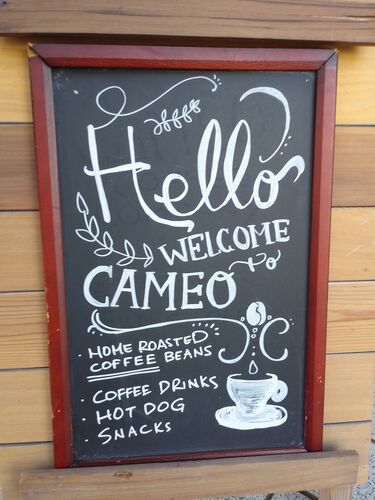 Hello
WELCOME
To
CAMEO
· HOME ROASTED
COFFEE BEANS
· COFFEE DRINKS
· HOT DOG
· SNACKS